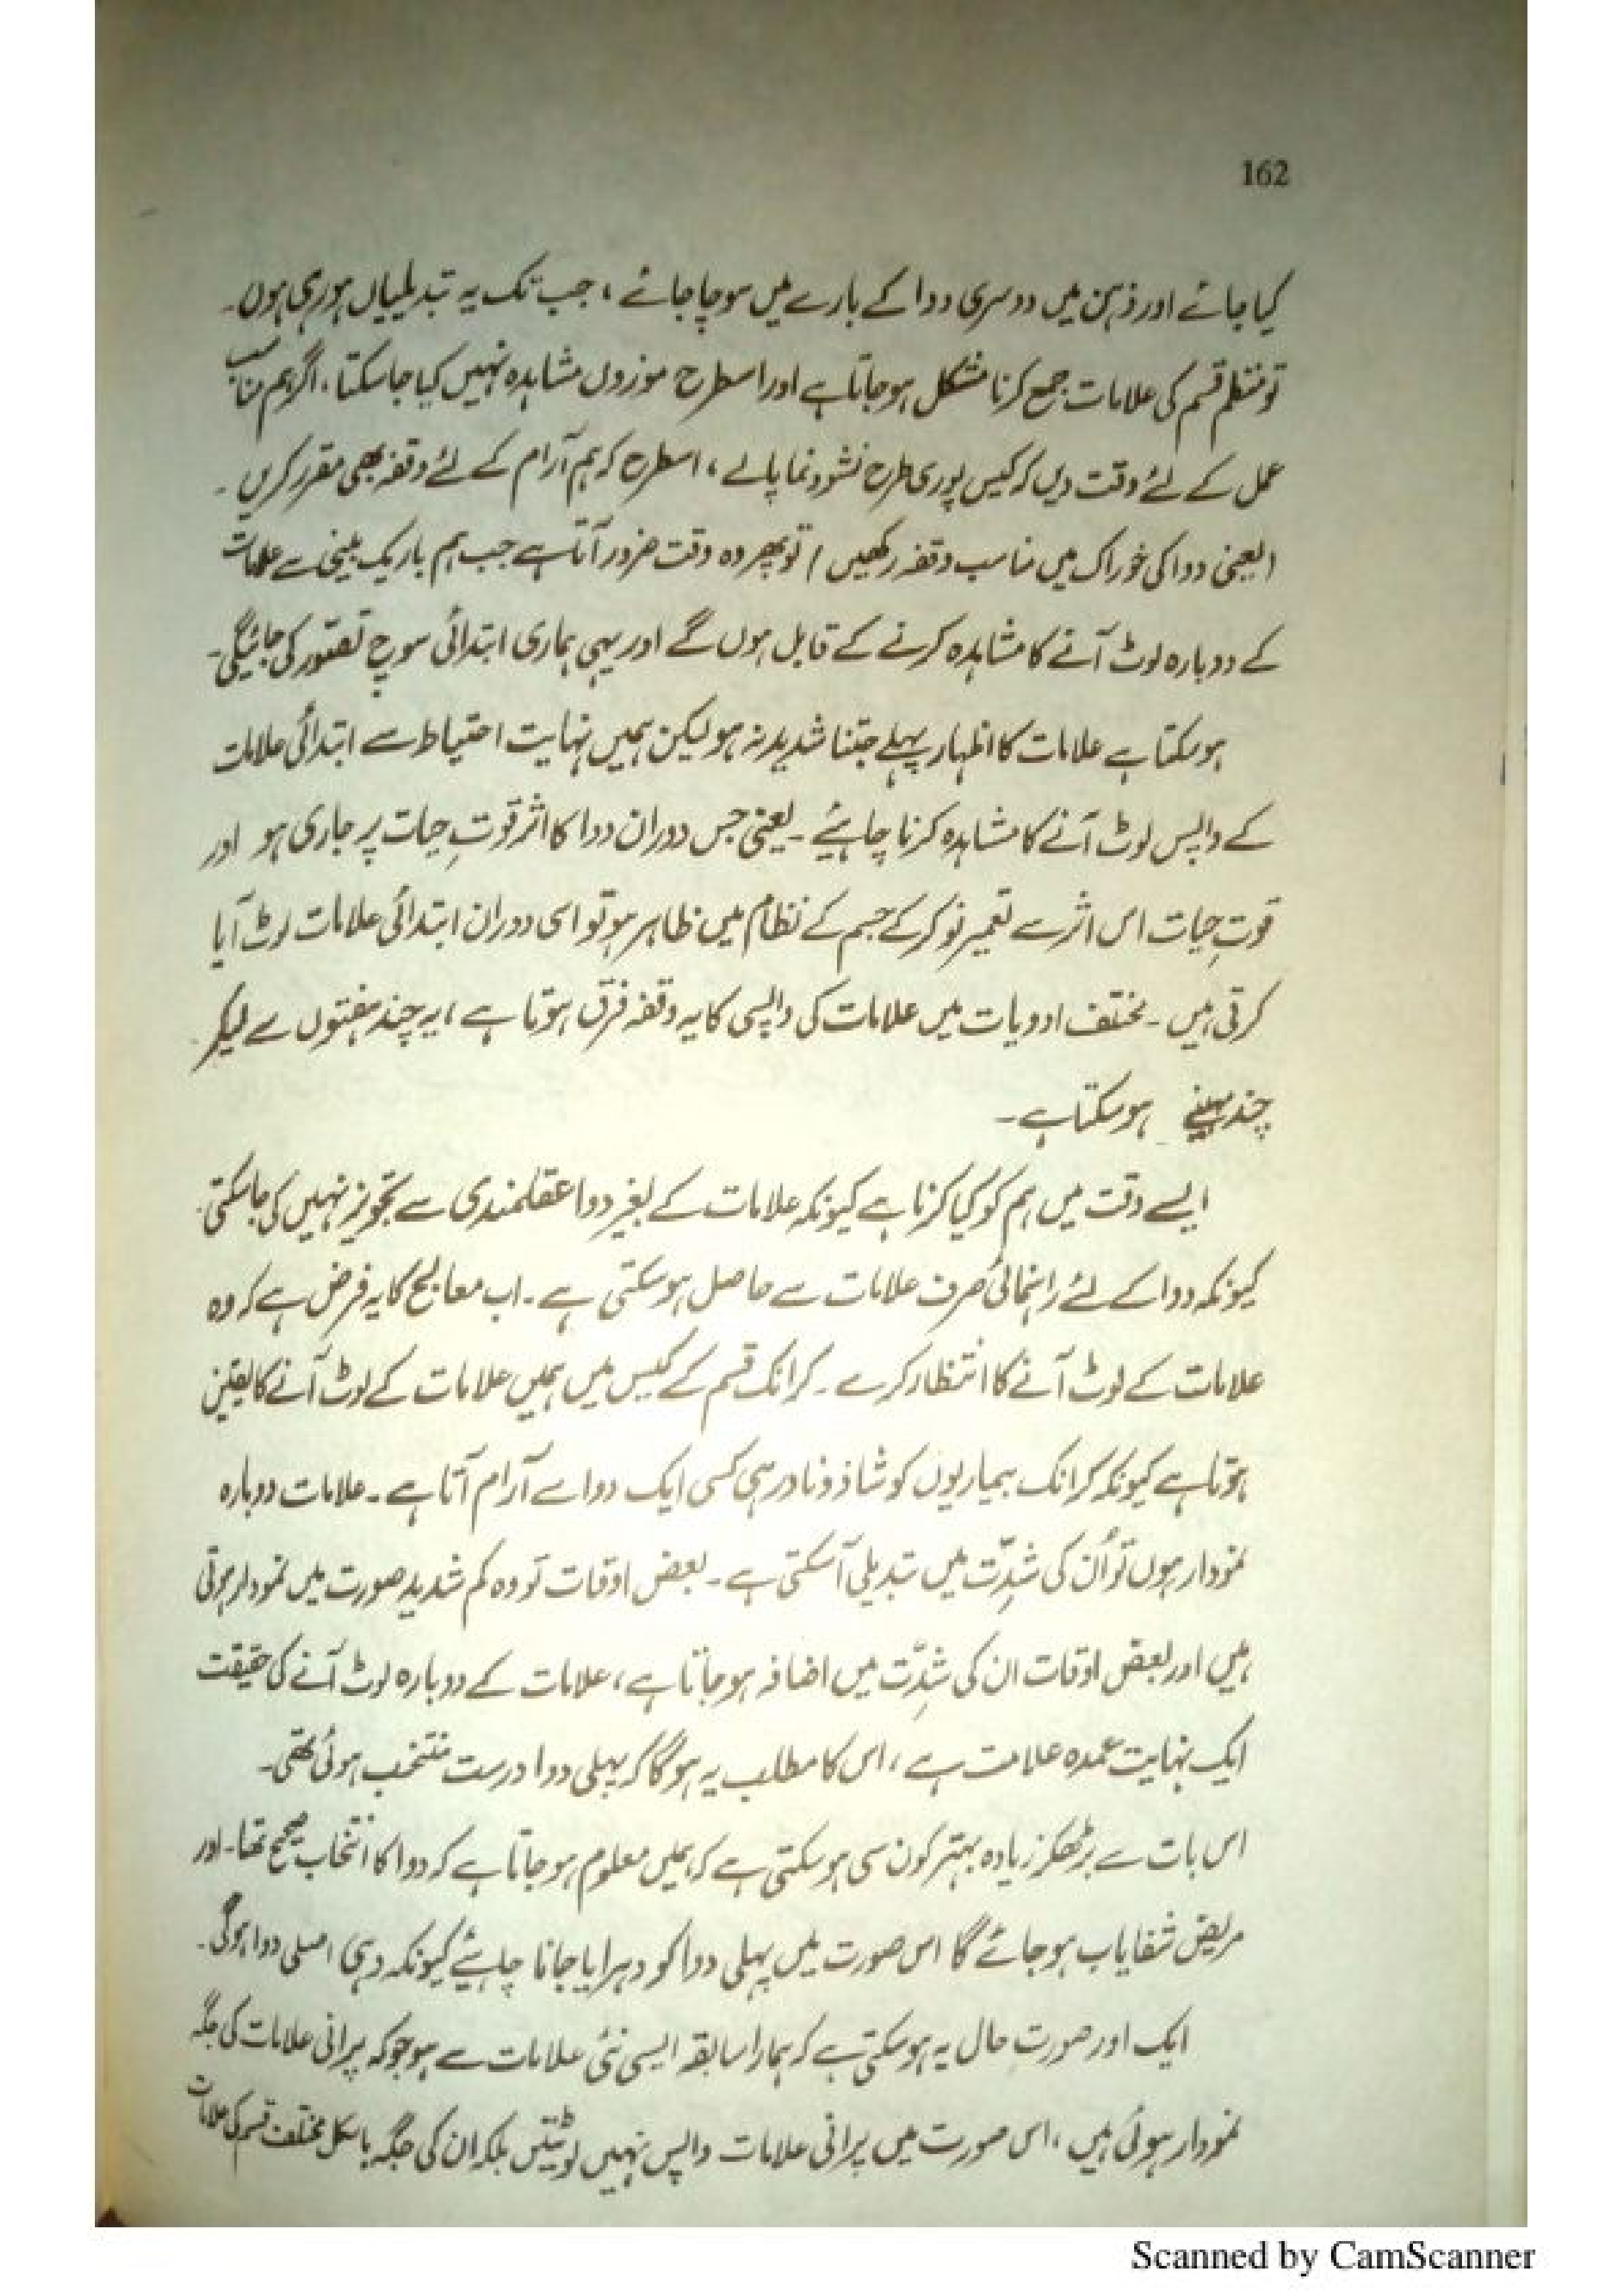 162
کیا جائے اور ذہن میں دوسری دوا کے بارے میں سوچا جائے ، جب تک یہ تبدیلیاں ہو رہی ہوں۔
تو منظم قسم کی علامات جمع کرنا مشکل ہو جاتا ہے اور اسطرح موزوں مشاہدہ نہیں کیا جا سکتا ، اگر ہم مناسب
عمل کے لئے وقت دیں کہ کیس پوری طرح نشوونما پالے ، اسطرح کہ ہم آرام کے لئے وقفہ بھی مقرر کریں ۔
(یعنی دوا کی خوراک میں مناسب وقفہ رکھیں) تو پھر وہ وقت ضرور آتا ہے جب ہم باریک بینی سے علامات
کے دوبارہ لوٹ آنے کا مشاہدہ کرنے کے قابل ہوں گے اور یہی ہماری ابتدائی سوچ تصّور کی جائیگی۔
ہو سکتا ہے علامات کا اظہار پہلے جتنا شدید نہ ہو لیکن ہمیں نہایت احتیاط سے ابتدائی علامات
کے واپس لوٹ آنے کا مشاہدہ کرنا چاہئیے ۔ یعنی جس دوران دوا کا اثر قوتِ حیات پر جاری ہو اور
قوتِ حیات اس اثر سے تعمیرِ نو کر کے جسم کے نظام میں ظاہر ہو تو اسی دوران ابتدائی علامات لوٹ آیا
کرتی ہیں ۔ مختلف ادویات میں علامات کی واپسی کا یہ وقفہ فرق ہوتا ہے ، یہ چند ہفتوں سے لیکر
چند مہینے ہو سکتا ہے ۔
ایسے وقت میں ہم کو کیا کرنا ہے کیونکہ علامات کے بغیر دوا عقلمندی سے تجویز نہیں کی جا سکتی۔
کیونکہ دوا کے لئے راہنمائی صرف علامات سے حاصل ہو سکتی ہے ۔ اب معالج کا یہ فرض ہے کہ وہ
علامات کے لوٹ آنے کا انتظار کرے ۔ کرانک قسم کے کیس میں ہمیں علامات کے لوٹ آنے کا یقین
ہوتا ہے کیونکہ کرانک بیماریوں کو شاذ و نادر ہی کسی ایک دوا سے آرام آتا ہے ۔ علامات دوبارہ
نمودار ہوں تو اُن کی شِدّت میں تبدیلی آ سکتی ہے ۔ بعض اوقات تو وہ کم شدید صورت میں نمودار ہوتی
ہیں اور بعض اوقات ان کی شِدّت میں اضافہ ہو جاتا ہے ، علامات کے دوبارہ لوٹ آنے کی حقیقت
ایک نہایت عمدہ علامت ہے ، اس کا مطلب یہ ہو گا کہ پہلی دوا درست منتخب ہوئی تھی۔
اس بات سے بڑھکر زیادہ بہتر کون سی ہو سکتی ہے کہ ہمیں معلوم ہو جاتا ہے کہ دوا کا انتخاب صحیح تھا۔ اور
مریض شفایاب ہو جائے گا اس صورت میں پہلی دوا کو دہرایا جانا چاہئیے کیونکہ وہی اصلی دوا ہو گی۔
ایک اور صورت حال یہ ہو سکتی ہے کہ ہمارا سابقہ ایسی نئی علامات سے ہو جو کہ پرانی علامات کی جگہ
نمودار ہوئی ہیں ، اس صورت میں پرانی علامات واپس نہیں لوٹیتیں بلکہ ان کی جگہ بالکل مختلف قسم کی علامات
Scanned by CamScanner